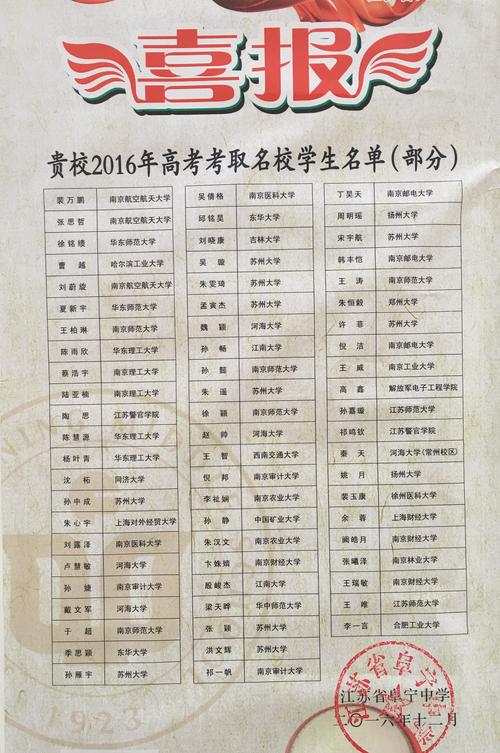 喜报
贵校2016年高考考取名校学生名单(部分)
裴万鹏 南京航空航天大学 吴倩格 南京医科大学 丁昊天 南京邮电大学
张思哲 南京航空航天大学 邱铭昊 东华大学 周明瑶 扬州大学
徐铭缕 华东师范大学 刘晓康 吉林大学 宋宇航 苏州大学
曹越 哈尔滨工业大学 吴璇 苏州大学 韩丰恺 南京邮电大学
刘蔚旋 南京航空航天大学 朱雯琦 苏州大学 王涛 南京师范大学
夏新宇 华东师范大学 孟寅杰 苏州大学 朱恒毅 郑州大学
王柏琳 南京师范大学 魏颖 河海大学 许菲 苏州大学
陈雨欣 华东理工大学 孙畅 江南大学 倪洁 南京邮电大学
蔡浩宇 南京师范大学 孙懿 南京师范大学 王威 南京工业大学
陆亚楠 南京师范大学 朱遥 苏州大学 高鑫 解放军电子工程学院
陶思 江苏警官学院 徐颖 南京师范大学 孙嘉璇 江苏师范大学
陈慧源 华东理工大学 赵帅 河海大学 祁鸣钦 江苏警官学院
杨叶青 华东理工大学 王智 西南交通大学 秦天 河海大学(常州校区)
沈柘 同济大学 倪邦 南京审计大学 姚月 扬州大学
孙中成 苏州大学 李祉娴 南京农业大学 裴玉康 徐州医科大学
朱心宇 上海对外经贸大学 孙静 中国矿业大学 余蓉 上海财经大学
刘露泽 南京医科大学 朱汉文 南京农业大学 阚皓月 南京财经大学
卢慧敏 河海大学 卞姝婧 南京财经大学 张曦泽 南京林业大学
孙婕 南京审计大学 殷峻杰 江南大学 王瑞敏 南京财经大学
戴文军 河海大学 梁天晔 华中师范大学 王唯 江苏师范大学
于超 南京师范大学 张颖 苏州大学 李一言 合肥工业大学
季思颖 东华大学 洪文辉 苏州大学
孙雁宇 苏州大学 祁一帆 南京审计大学
江苏省阜宁中学
二〇一六年十二月